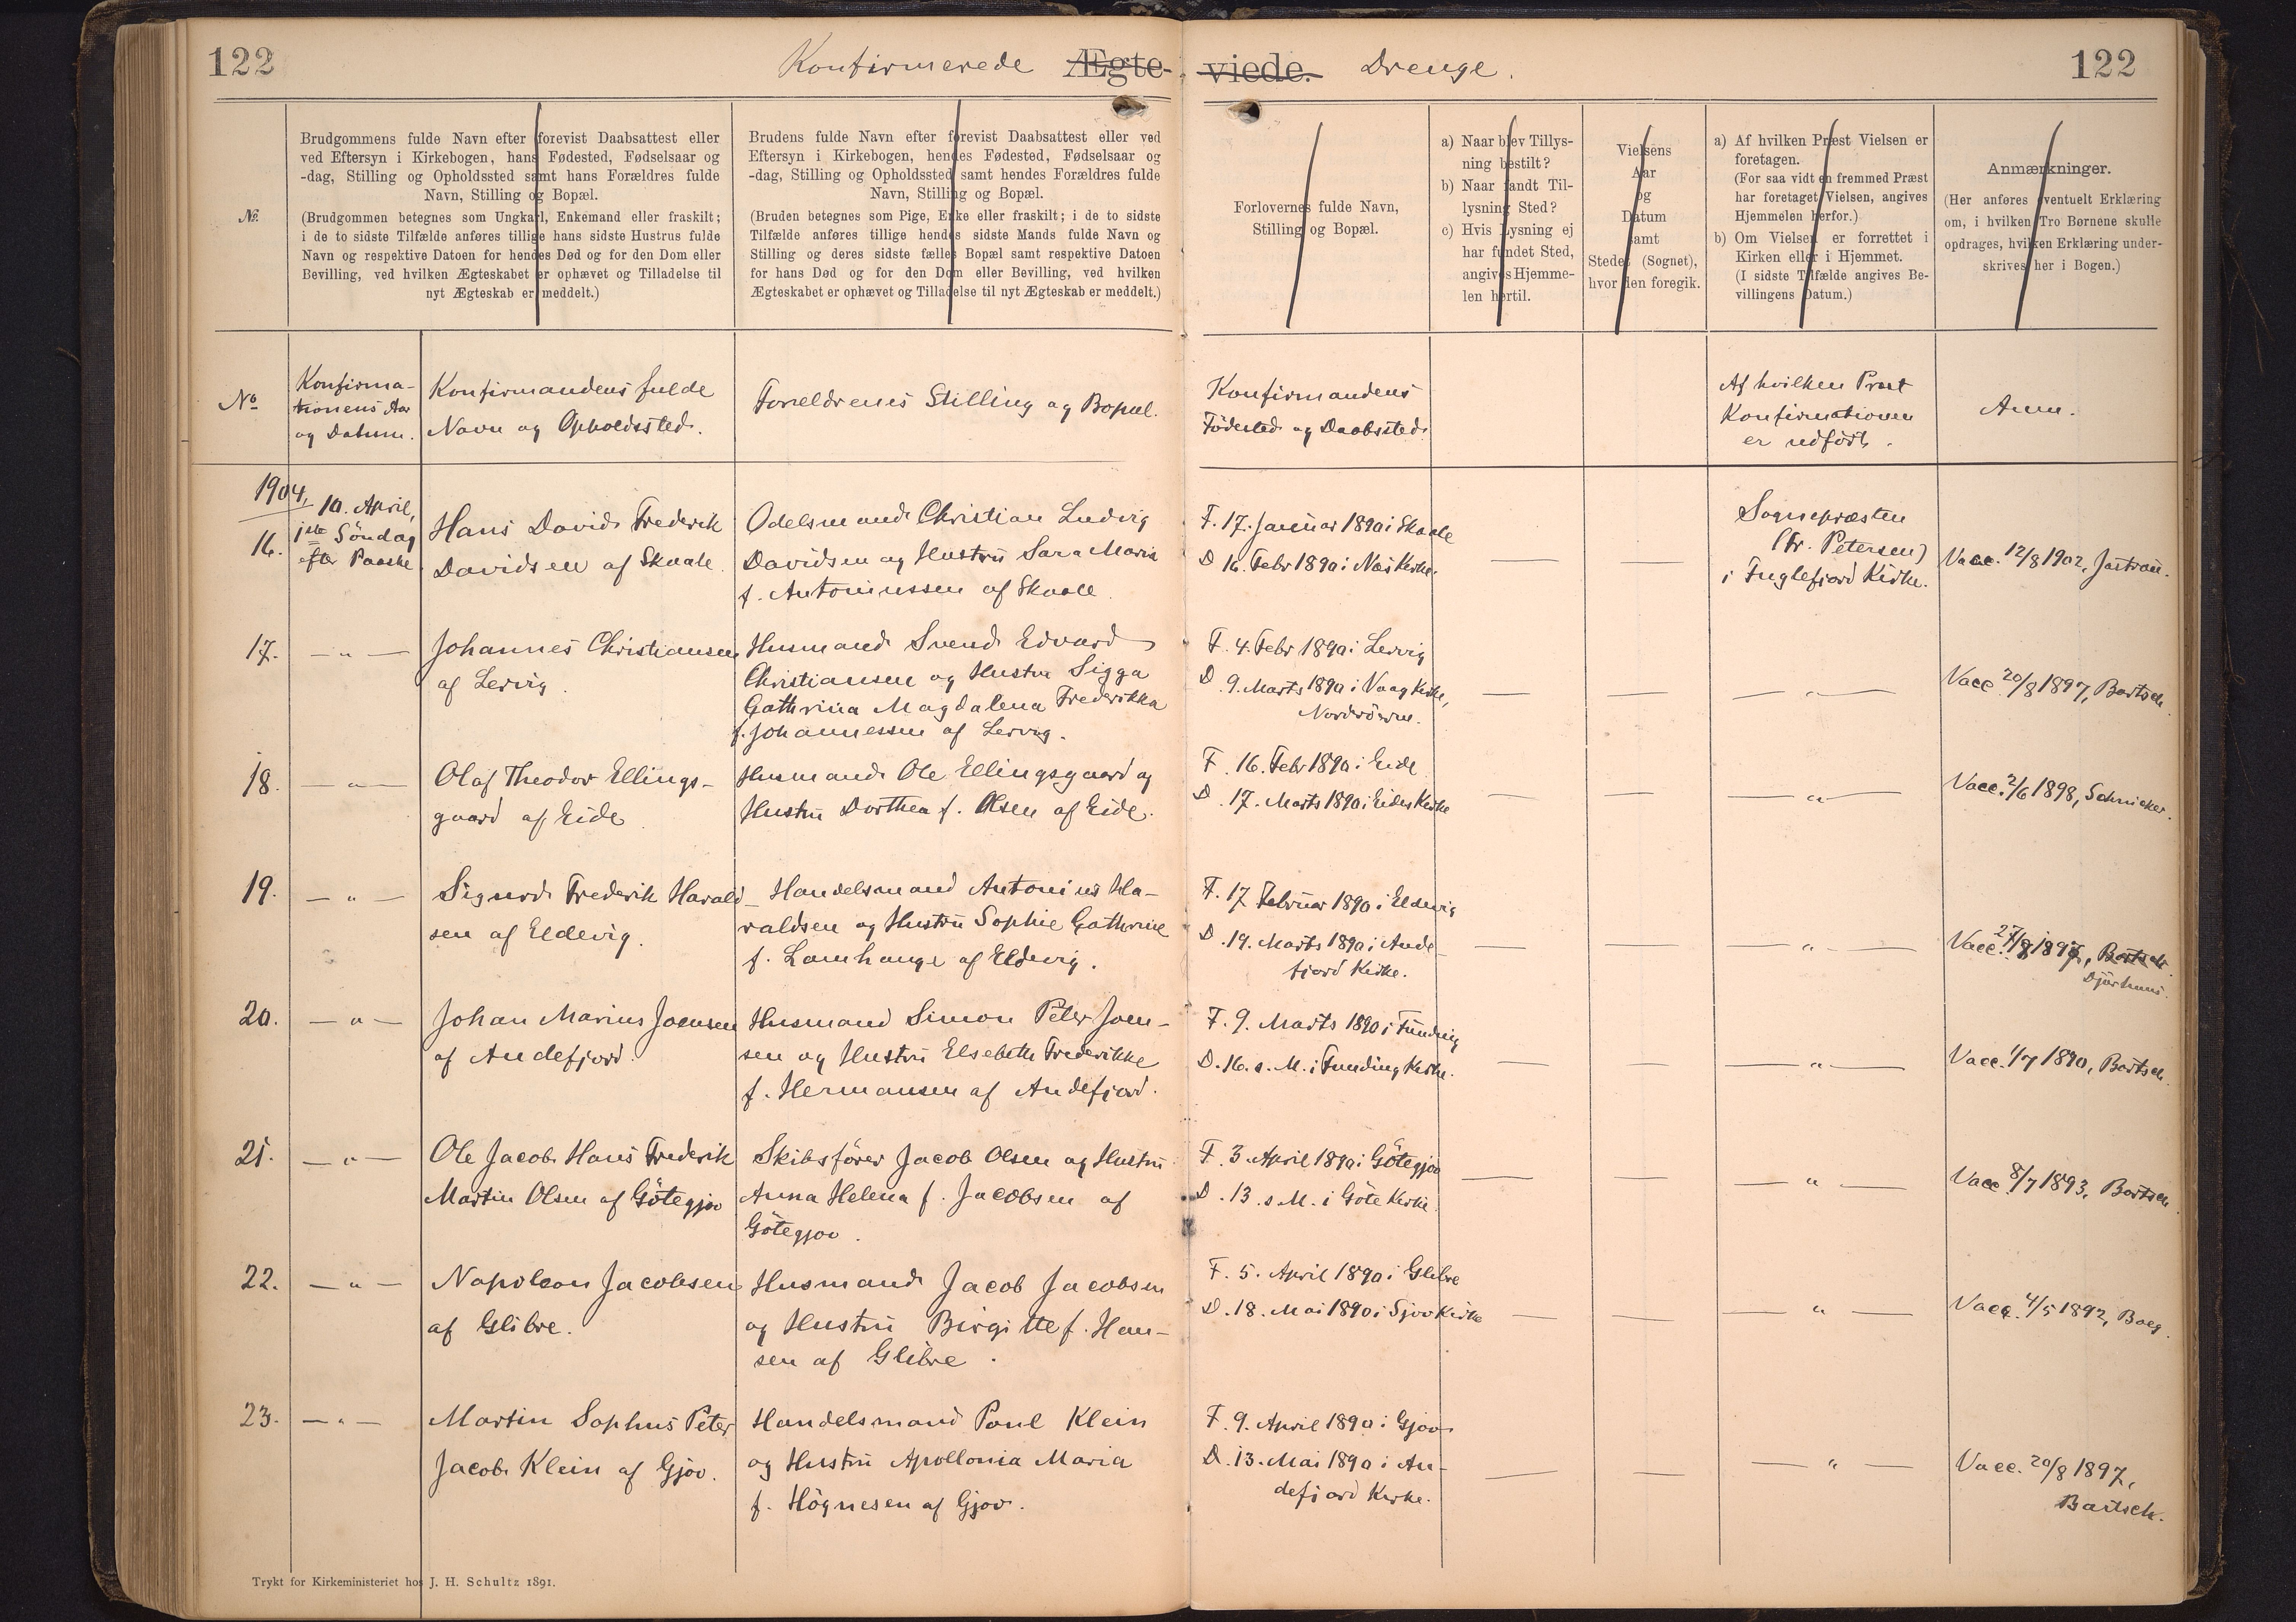 122
Konfirmerede Ægte-viede. Drenge.
122
No.
Brudgommens fulde Navn efter forevist Daabsattest eller
ved Eftersyn i Kirkebogen, hans Fødested, Fødselsaar og
-dag, Stilling og Opholdssted samt hans Forældres fulde
Navn, Stilling og Bopæl.
(Brudgommen betegnes som Ungkarl, Enkemand eller fraskilt;
i de to sidste Tilfælde anføres tillige hans sidste Hustrus fulde
Navn og respektive Datoen for hendes Død og for den Dom eller
Bevilling, ved hvilken Ægteskabet er ophævet og Tilladelse til
nyt Ægteskab er meddelt.)
Brudens fulde Navn efter forevist Daabsattest eller ved
Eftersyn i Kirkebogen, hendes Fødested, Fødselsaar og
-dag, Stilling og Opholdssted samt hendes Forældres fulde
Navn, Stilling og Bopæl.
(Bruden betegnes som Pige, Enke eller fraskilt; i de to sidste
Tilfælde anføres tillige hendes sidste Mands fulde Navn og
Stilling og deres sidste fælles Bopæl samt respektive Datoen
for hans Død og for den Dom eller Bevilling, ved hvilken
Ægteskabet er ophævet og Tilladelse til nyt Ægteskab er meddelt.)
Forlovernes fulde Navn,
Stilling og Bopæl.
a) Naar blev Tillys-
ning bestilt?
b) Naar fandt Til-
lysning Sted?
c) Hvis Lysning ej
har fundet Sted,
angives Hjemme-
len hertil.
Vielsens
Aar
og
Datum
samt
Stedet (Sognet),
hvor den foregik.
a) Af hvilken Præst Vielsen er
foretagen.
(For saa vidt en fremmed Præst
har foretaget Vielsen, angives
Hjemmelen herfor.)
b) Om Vielsen er forrettet i
Kirken eller i Hjemmet.
(I sidste Tilfælde angives Be-
villingens Datum.)
Anmærkninger.
(Her anføres eventuelt Erklæring
om, i hvilken Tro Børnene skulle
opdrages, hvilken Erklæring under-
skrives her i Bogen.)
No
Konfirma-
tionens Aar
og Datum.
Konfirmandens fulde
Navn og Opholdssted.
Forældrenes Stilling og Bopæl.
Konfirmandens
Födested og Daabssted.
Af hvilken Præst
Konfirmationen
er udfört.
Anm.
1904,
16.
10. April,
1ste Söndag
efter Paaske
Hans David Frederik
Davidsen af Skaale.
Odelsmand Christian Ludvig
Davidsen og Hustru Sara Maria
f. Antoniussen af Skaale.
F. 17. Januar 1890 i Skaale
D 16. Febr 1890 i Næs Kirke.
— —
Sognepræsten
(Fr. Petersen)
i Fuglefjord Kirke.
Vacc. 12/8 1902, Jastrau.
17. — " —
Johannes Christiansen
af Lervig.
Husmand Svend Edvard
Christiansen og Hustru Sigga
Cathrina Magdalena Frederikka
f. Johannessen af Lervig.
F. 4. Febr 1890 i Lervig
D. 9. Marts 1890 i Vaag Kirke,
Norderöerne.
— — — " —
Vacc 20/8 1897, Bartsch.
18. — " —
Olaf Theodor Ellings-
gaard af Eide
Husmand Ole Ellingsgaard og
Hustru Dorthea f. Olsen af Eide.
F. 16. Febr 1890 i Eide
D. 17. Marts 1890 i Eides Kirke
— — — " —
Vacc. 2/6 1898, Schnicker.
19. — " —
Sigurd Frederik Harald-
sen af Eldevig.
Handelsmand Antonius Ha-
raldsen og Hustru Sophie Cathrine
f. Lamhauge af Eldevig.
F. 17 Februar 1890 i Eldevig
D. 19. Marts 1890 i Ande-
fjord Kirke.
— — — " —
Vacc. 27/8 1897, Bartsch
Djurhuus.
20. — " —
Johan Marius Joensen
af Andefjord.
Husmand Simon Peter Joen-
sen og Hustru Elsebeth Frederikke
f. Hermansen af Andefjord.
F. 9. Marts 1890 i Funding
D. 16. s. M. i Funding Kirke.
— — — " —
Vacc. 1/7 1890, Bartsch.
21. — " —
Ole Jacob Hans Frederik
Martin Olsen af Götegjov
Skibsförer Jacob Olsen og Hustru
Anna Helena f. Jacobsen af
Götegjov.
F. 3. April 1890 i Götegjov
D. 13. s M. i Göte Kirke.
— — — " —
Vacc. 8/7 1893, Bartsch.
22. — " —
Napoleon Jacobsen
af Glibre.
Husmand Jacob Jacobsen
og Hustru Birgitte f. Han-
sen af Glibre.
F. 5. April 1890 i Glibre
D. 18. Mai 1890 i Sjov Kirke
— — — " —
Vacc. 4/5 1892, Boeg.
23. — " —
Martin Sophus Peter
Jacob Klein af Gjov.
Handelsmand Poul Klein
og Hustru Apollonia Maria
f. Högnesen af Gjov.
F. 9. April 1890 i Gjov
D. 13. Mai 1890 i An-
defjord Kirke.
— — — " —
Vacc. 20/8 1897,
Bartsch.
Trykt for Kirkeministeriet hos J. H. Schultz 1891.